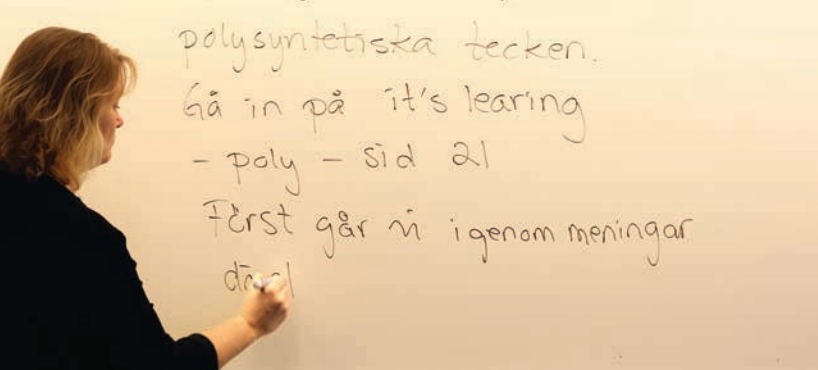 polysyntetiska tecken.
Gå in på it's learing
- poly - sid 21
Först går vi igenom meningar